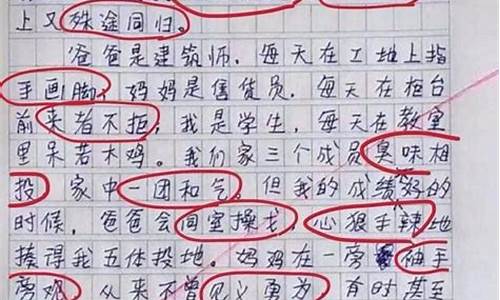 上又殊途同归。
爸爸是建筑师，每天在工地上指
手画脚，妈妈是售货员，每天在柜台
前来者不拒，我是学生，每天在教室
里呆若木鸡。我们家三个成员臭味相
投 家中一团和气。但我的成绩不好的
时候，爸爸会同室操戈，心狠手辣地
揍得我五体投地。妈妈在一旁袖手
旁观，从来不曾见义勇为，有时甚至